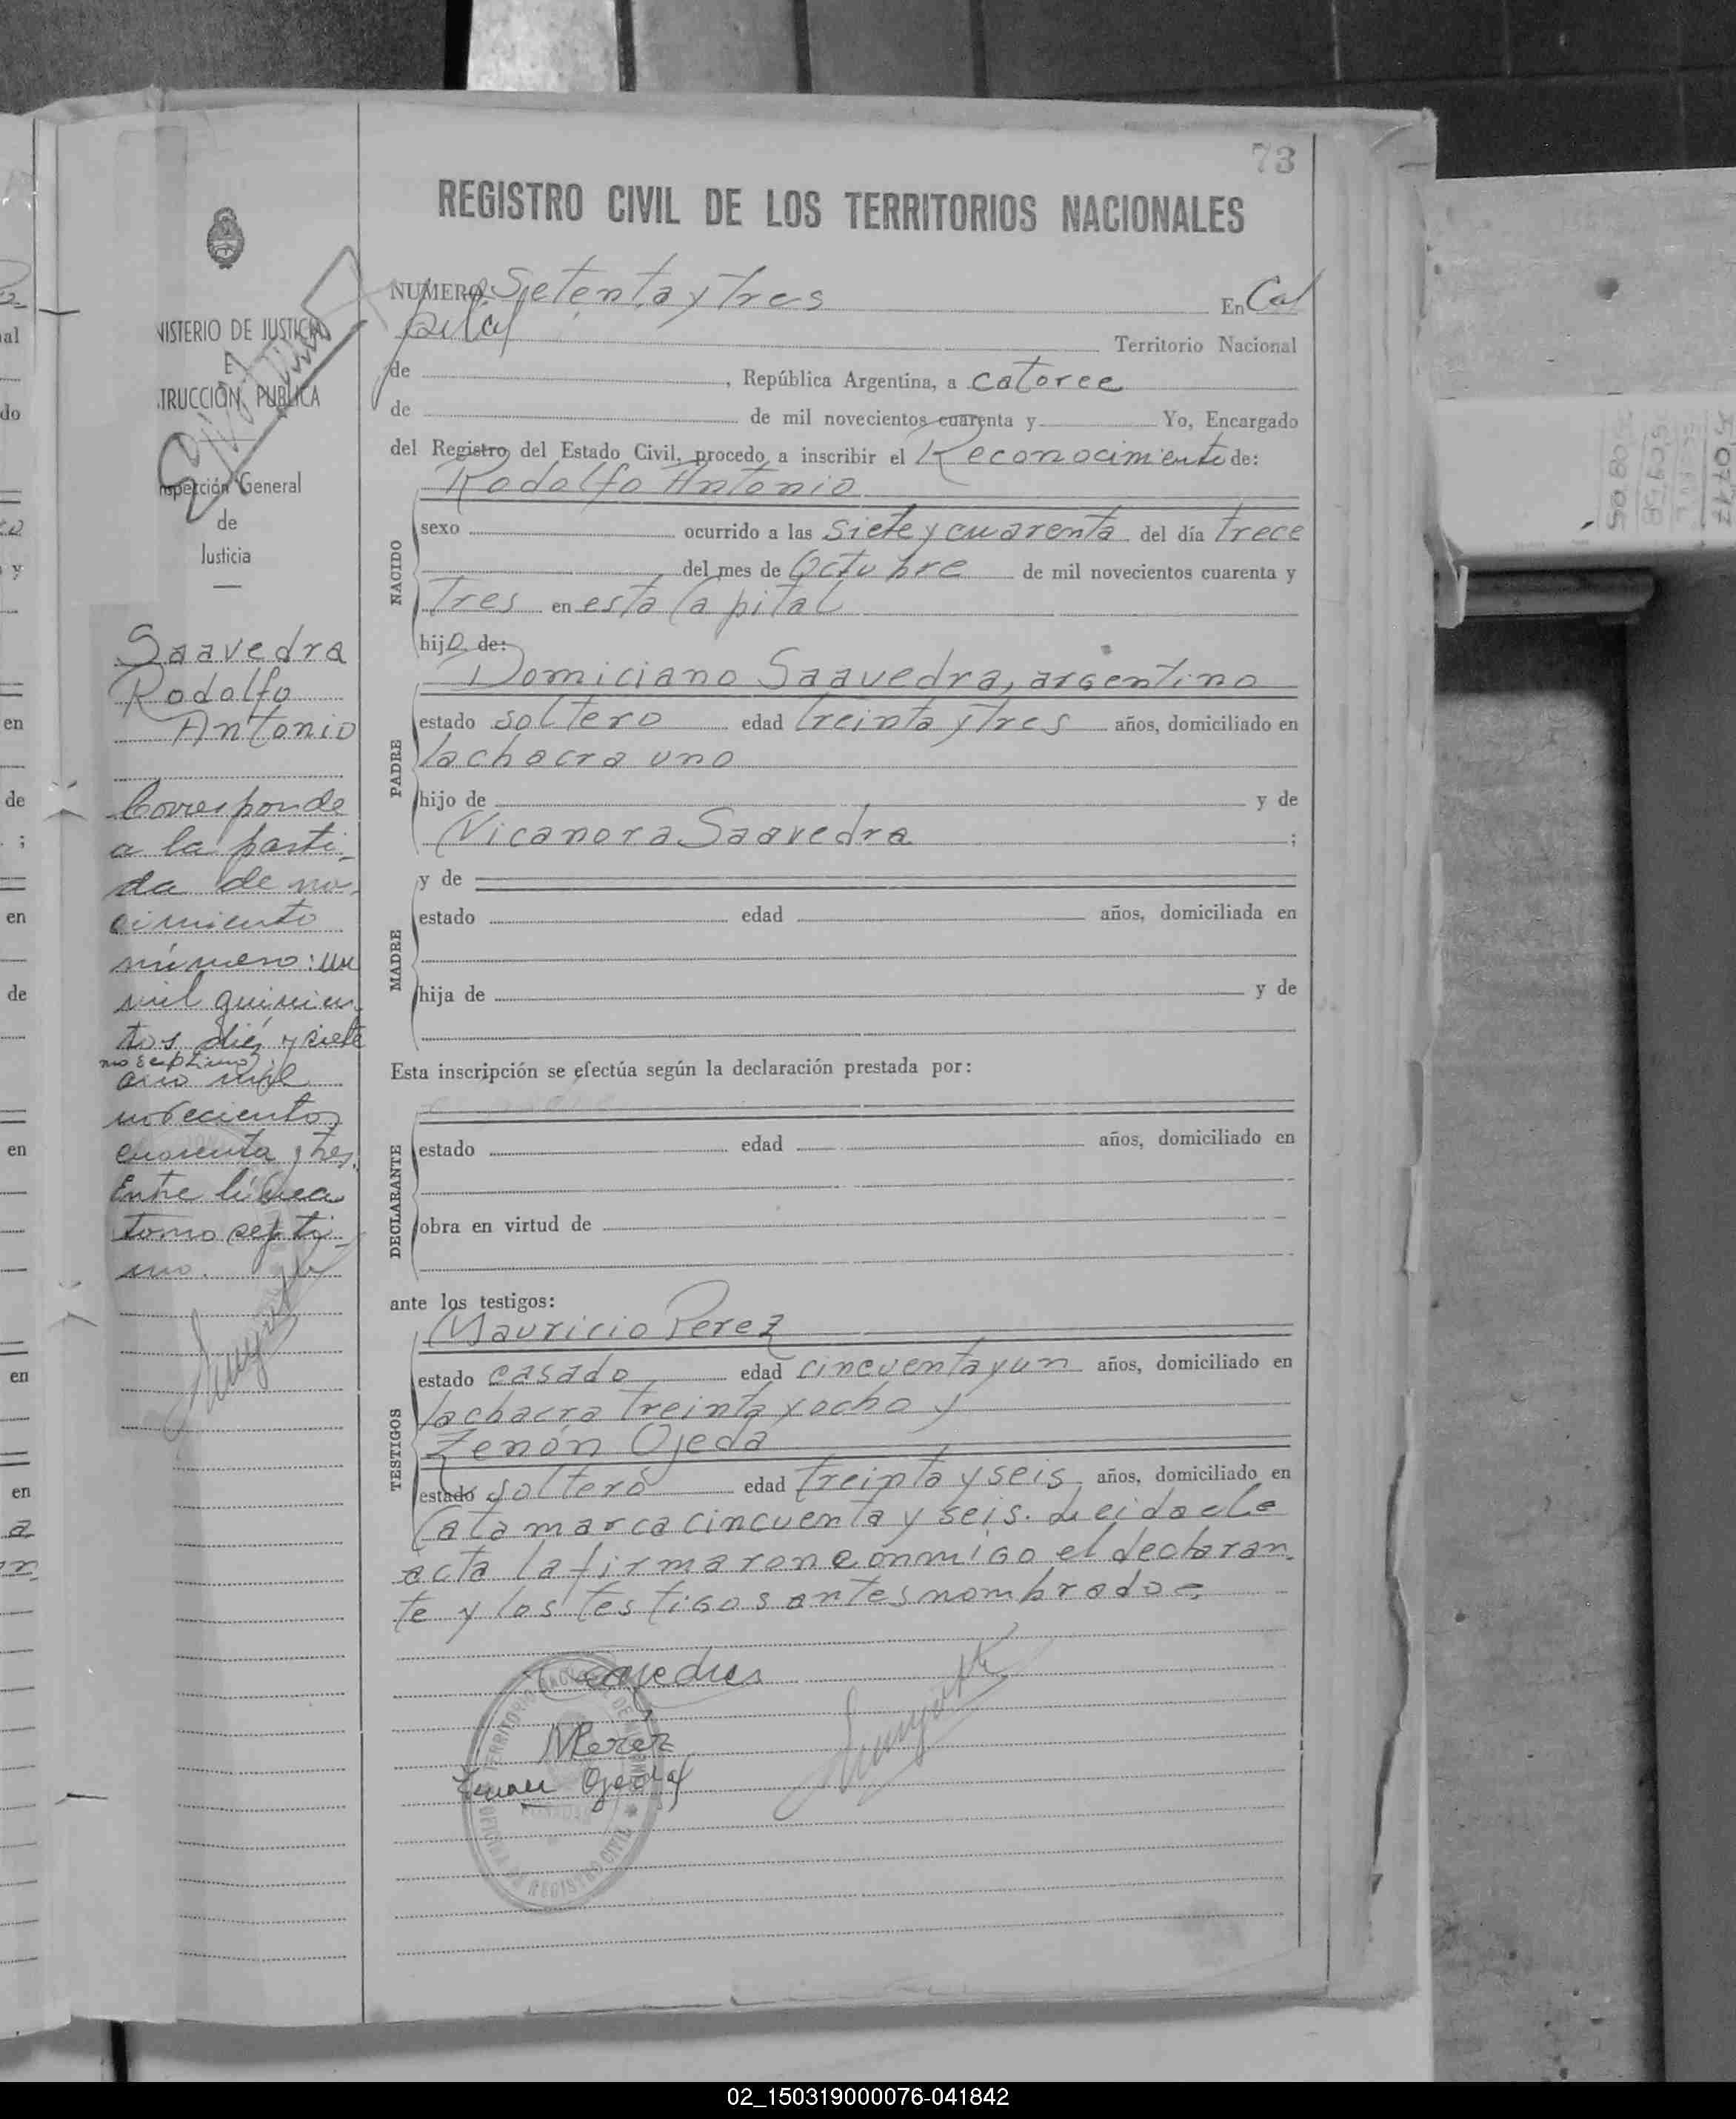 73
REGISTRO CIVIL DE LOS TERRITORIOS NACIONALES
NUMERO Setenta y Tres En Ca
pital Territorio Nacional
de , República Argentina, a catorce
de de mil novecientos cuarenta y Yo, Encargado
del Registro del Estado Civil, procedo a inscribir el Reconocimiento de:
Rodolfo Antonio
NACIDO
sexo ocurrido a las siete y cuarenta del día trece
del mes de Octubre de mil novecientos cuarenta y
Tres en esta Capital
hijo de:
PADRE
Domiciano Saavedra, argentino
estado soltero edad treinta y tres años, domiciliado en
la chacra uno
hijo de y de
Nicanora Saavedra ;
MADRE
y de
estado edad años, domiciliada en
hija de y de
Esta inscripción se efectúa según la declaración prestada por:
DECLARANTE
estado edad años, domiciliado en
obra en virtud de
ante los testigos:
TESTIGOS
Mauricio Perez
estado casado edad cincuenta y un años, domiciliado en
la chacra treinta y ocho y
Zenón Ojeda
estado soltero edad treinta y seis años, domiciliado en
Catamarca cincuenta y seis. Leida el
acta la firmaron conmigo el declaran
te y los testigos antes nombrado=
MPerez
Zenon Ojeda
TERRITORIO NACIONAL DE MISIONES
OFICINA DE REGISTRO CIVIL
NISTERIO DE JUSTICIA
E
TRUCCION PUBLICA
nspección General
de
Justicia
Saavedra
Rodolfo
Antonio
Corresponde
a la parti-
da de na-
cimiento
número: un
mil quinien
tos diez y siete
mo septimo
año mil
novecientos
cuarenta y tres.
Entre línea
tomo septi-
mo.
al
do
y
en
de
;
en
de
en
en
en
02_150319000076-041842